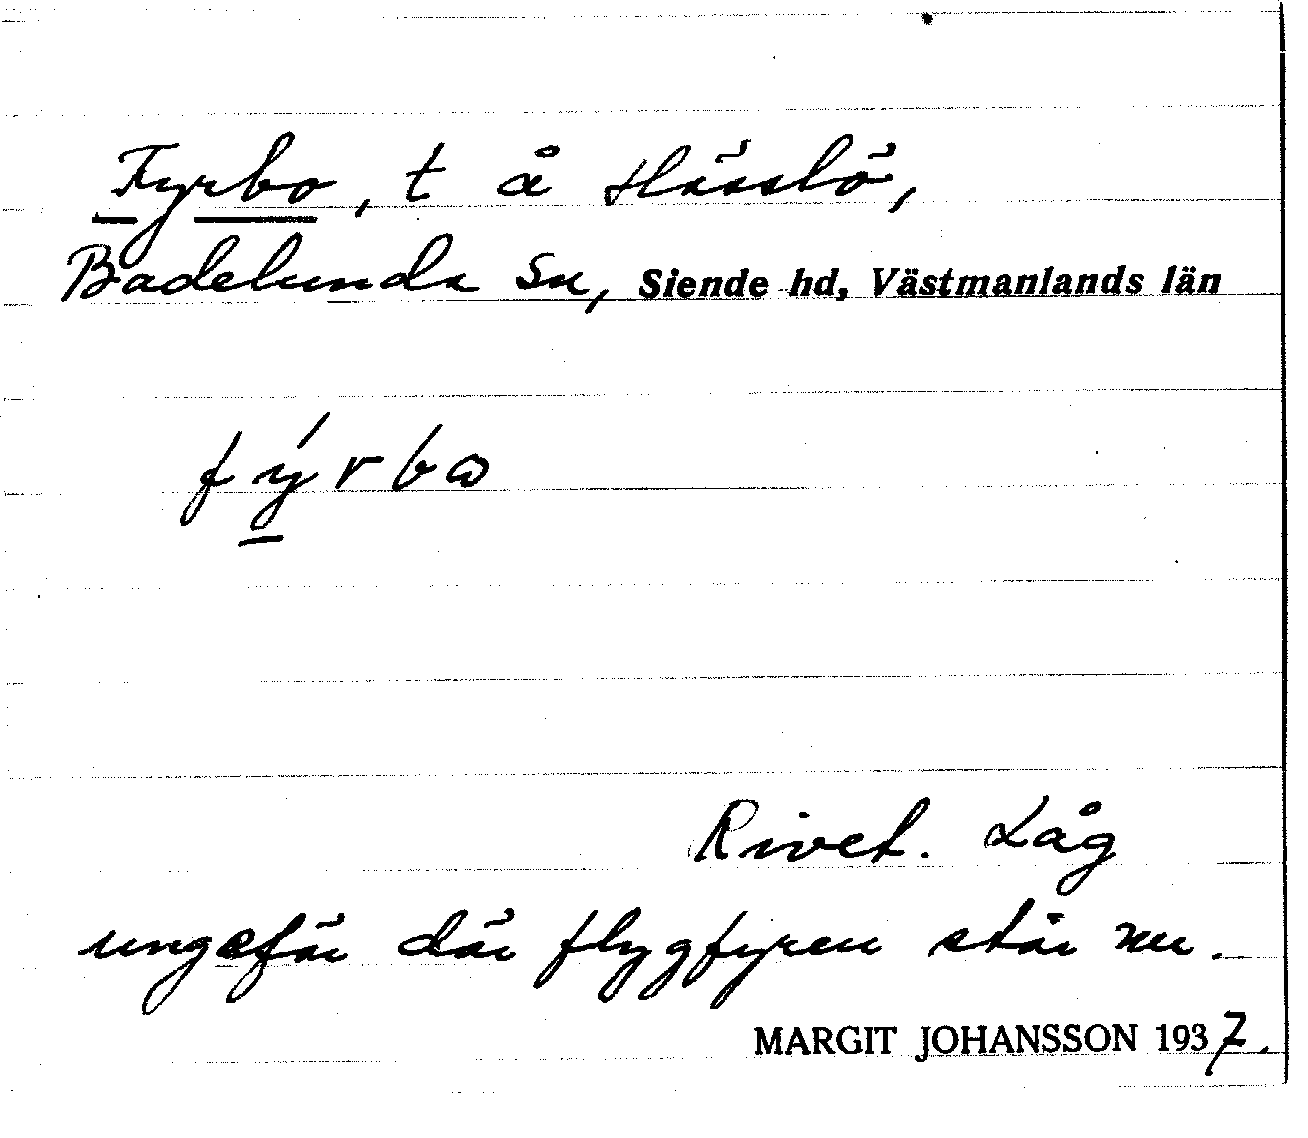 Fyrbo, t å Hässlö,
Badelunda sn, Siende hd, Västmanlands län
fýrbɷ
Rivet. Låg
ungefär där flygfyren står nu.
MARGIT JOHANSSON 1937.